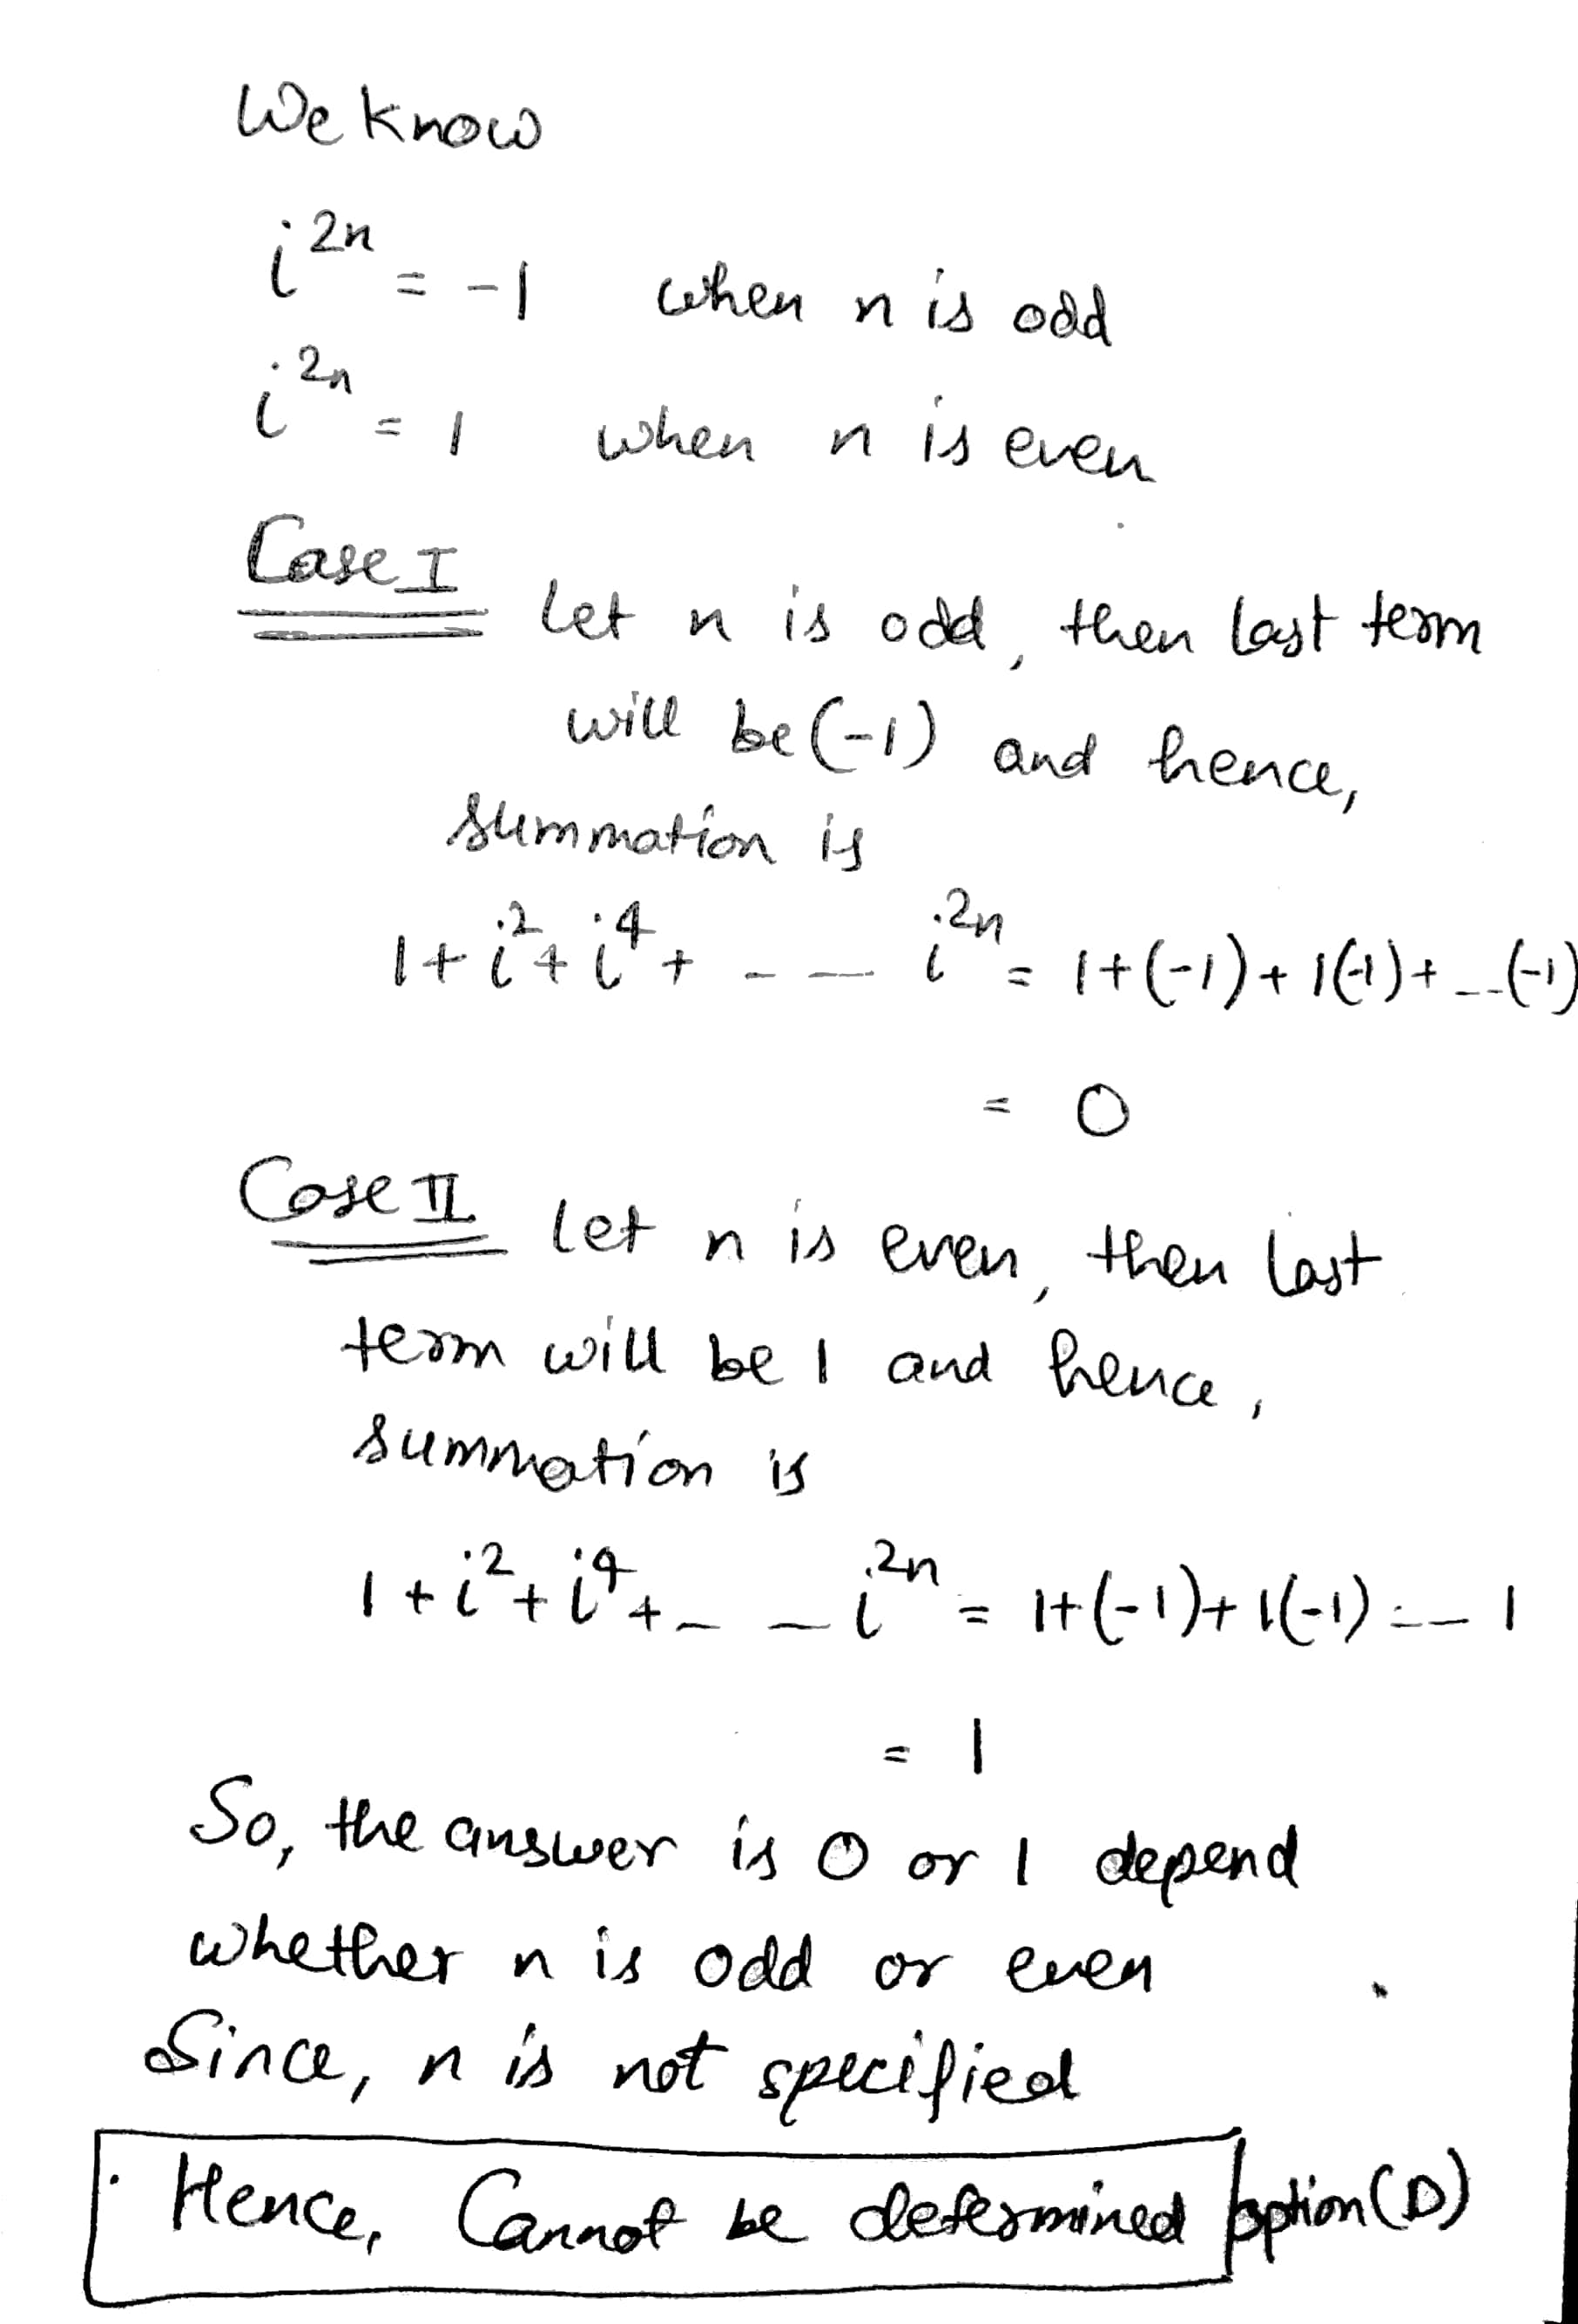 We know
i^2n = -1 when n is odd
i^2n = 1 when n is even
Case I Let n is odd, then last term
will be (-1) and hence,
summation is
1 + i^2 + i^4 + - - - i^2n = 1+(-1)+1(-1)+ _ _(-1)
= 0
Case II Let n is even, then last
term will be 1 and hence,
summation is
1 + i^2 + i^4 + _ _ i^2n = 1+(-1)+1(-1) - - 1
= 1
So, the answer is 0 or 1 depend
whether n is odd or even
Since, n is not specified
Hence, Cannot be determined option (D)